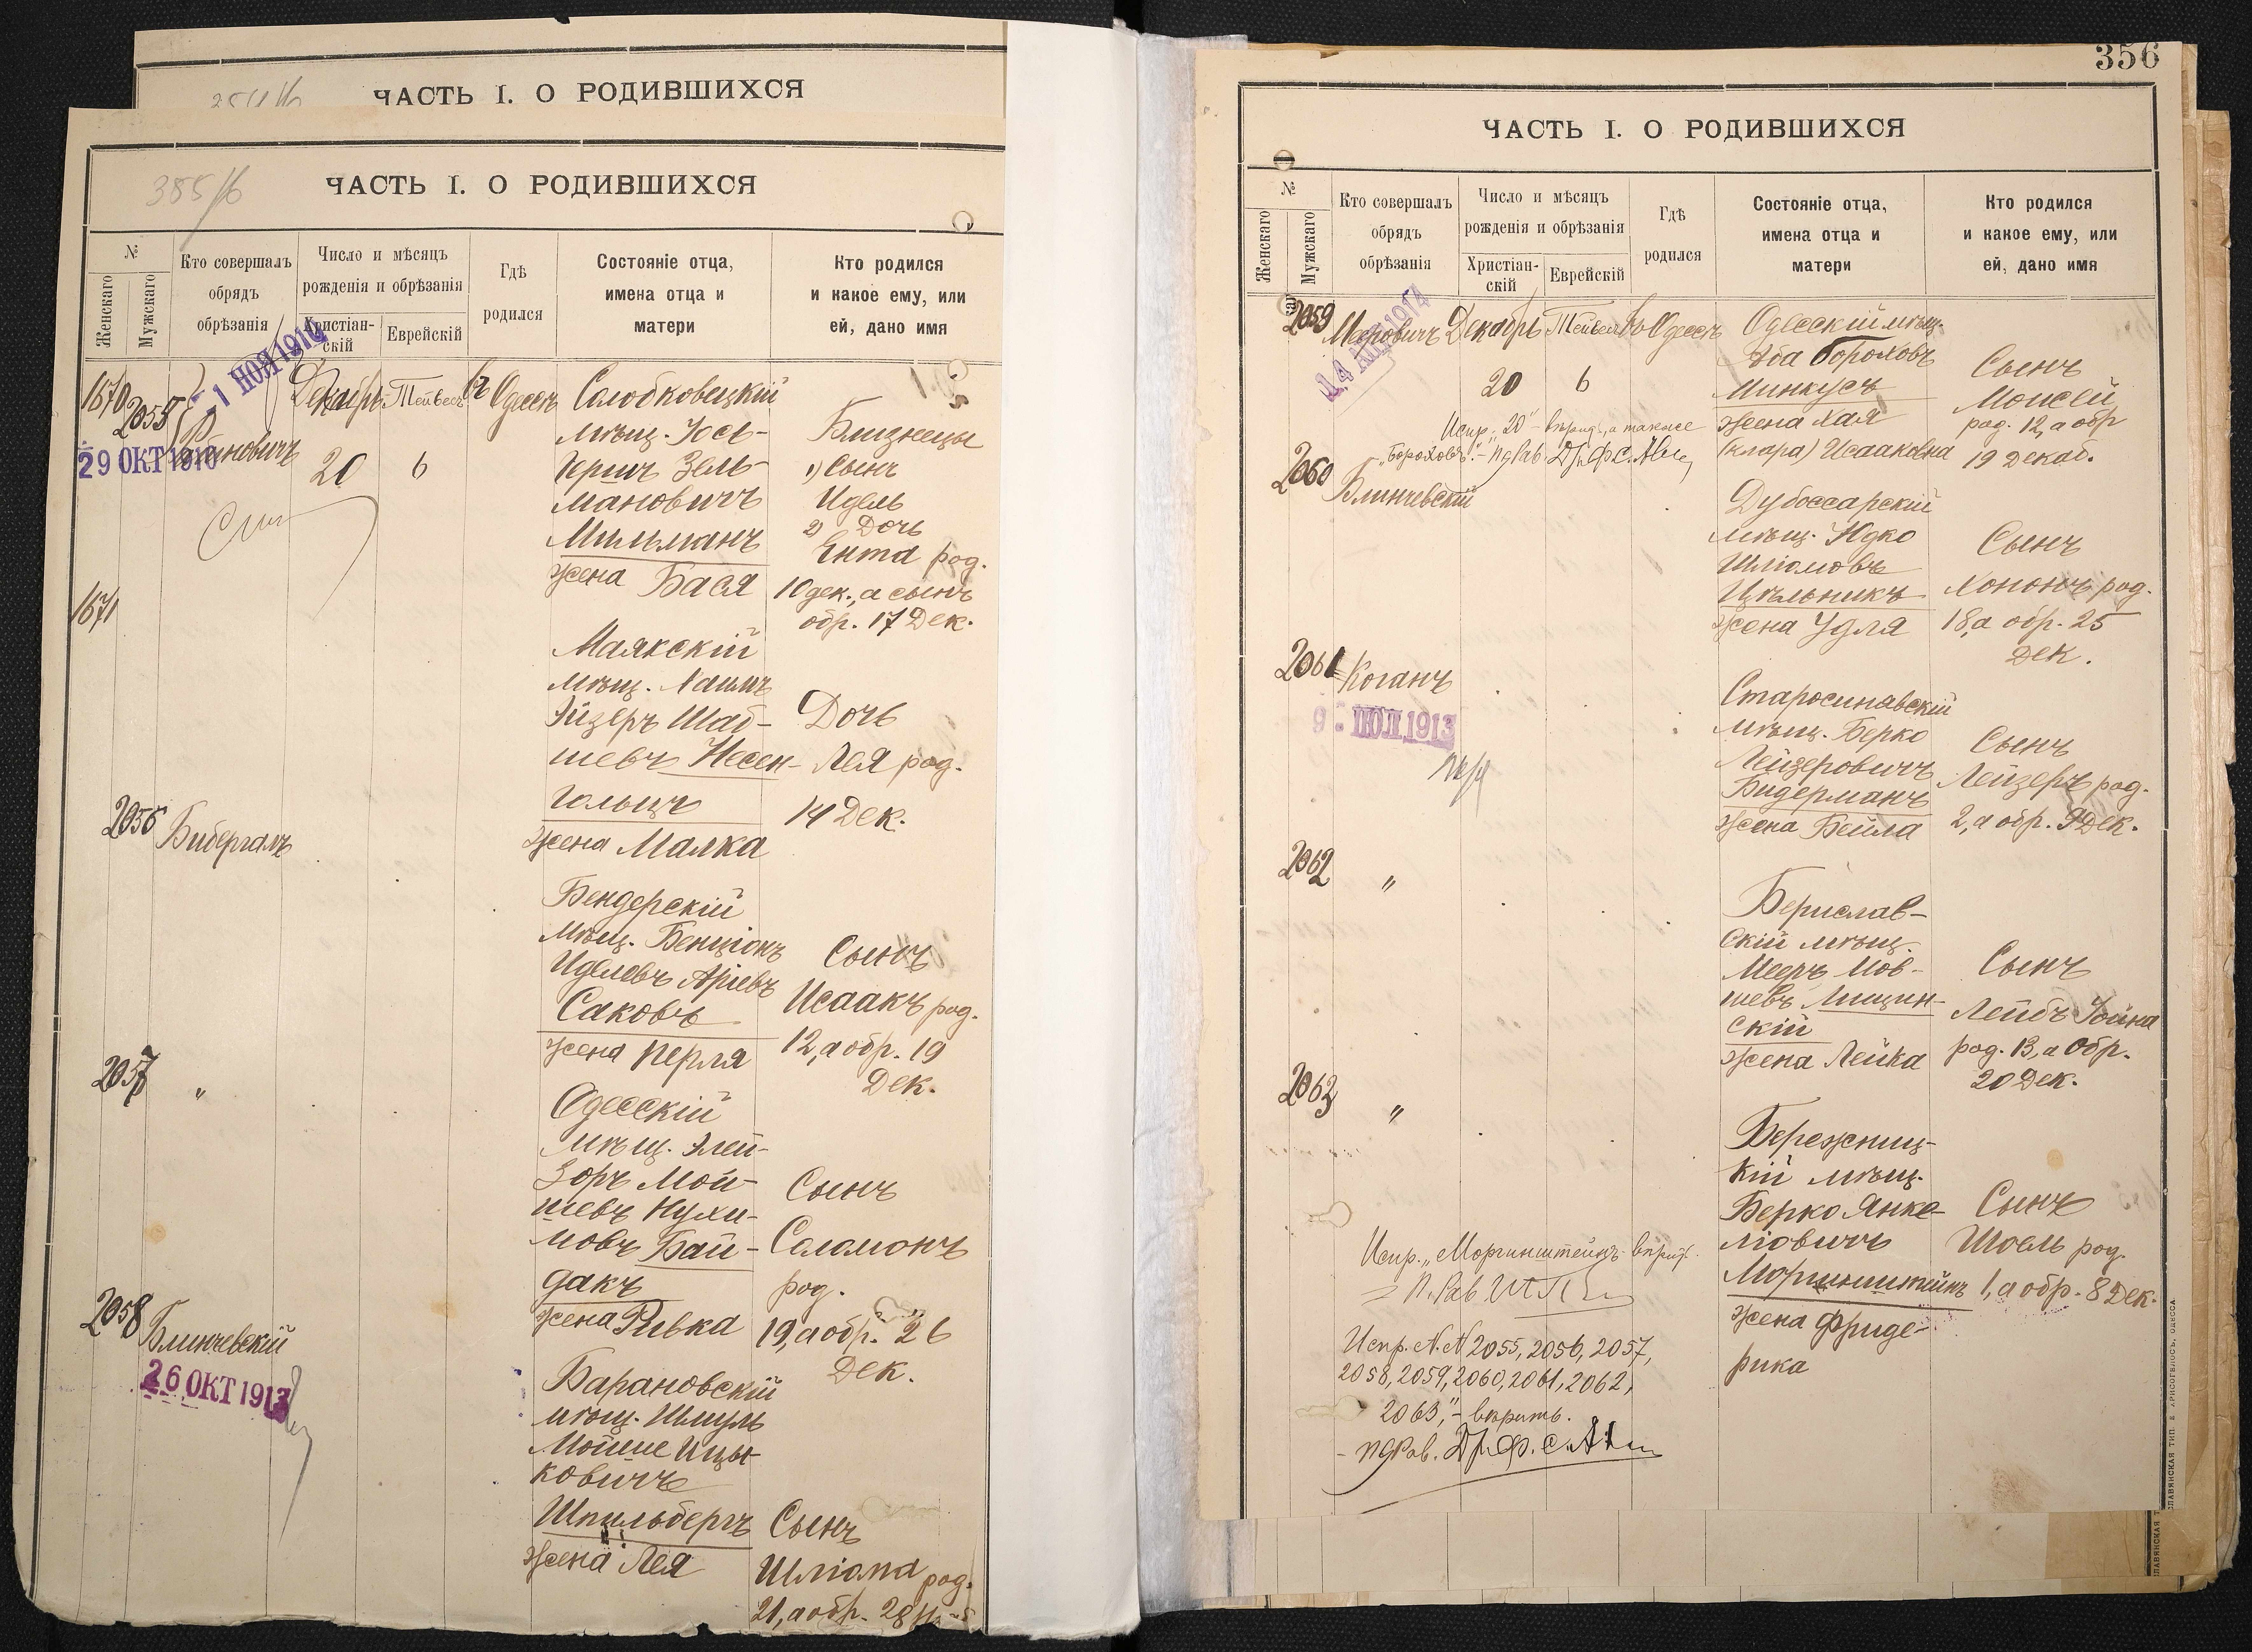 ЧАСТЬ I. О РОДИВШИХСЯ
385/б
ЧАСТЬ I. О РОДИВШИХСЯ
№
Женскаго
Мужскаго
Кто совершалъ
обрядъ
обрѣзанія
Число и мѣсяцъ
рожденія и обрѣзанія
Христіан-
скій
Еврейскій
Гдѣ
родился
Состояніе отца,
имена отца и
матери
Кто родился
и какое ему, или
ей, дано имя
1 НОЯ 1910
29 ОКТ 1910
1670
2055
Декабрь
20
Тейвесъ
6
Въ Одессѣ
Солобковецкій
мѣщ. Іось-
Гершъ Зель-
мановичъ
Мильманъ
жена Бася
Близнецы
1) Сынъ
Идель
2) Дочь
Ента род.
10 дек., а сынъ
обр. 17 Дек.
1671
Маякскій
мѣщ. Хаимъ
Эйзеръ Шаб-
шевъ Несен-
гольцъ
жена Малка
Дочь
Лея род.
14 Дек.
2056
Бибергалъ
Бендерскій
мѣщ. Бенціонъ
Иделевъ Аріевъ
Саковъ
жена Перля
Сынъ
Исаакъ род.
12, а обр. 19
Дек.
2057
"
Одесскій
мѣщ. Элей-
зоръ Мой-
шевъ Нухи-
мовъ Бай-
дакъ
жена Ривка
Сынъ
Соломонъ
род.
19, а обр. 26
Дек.
2058
Блинчевскій
26 ОКТ 1913
Барановскій
мѣщ. Шмуль
Мойше Ицы-
ковичъ
Шпильбергъ
жена Лея
Сынъ
Шліома род.
21, а обр. 28
356
ЧАСТЬ I. О РОДИВШИХСЯ
№
Женскаго
Мужскаго
Кто совершалъ
обрядъ
обрѣзанія
Число и мѣсяцъ
рожденія и обрѣзанія
Христіан-
скій
Еврейскій
Гдѣ
родился
Состояніе отца,
имена отца и
матери
Кто родился
и какое ему, или
ей, дано имя
2059
Меровичъ
Декабрь
20
Тейвесъ
6
Въ Одессѣ
Одесскій мѣщ.
Аба Бороховъ
Минкусъ
жена Хая
(Клара) Исааковна
Сынъ
Моисей
род. 12, а обр
19 Декаб.
Испр. "20" - вѣрить, а также
"Бороховъ".-
2060
Блинчевскій
Дубоссарскій
мѣщ. Юдко
Шліомовъ
Цѣльникъ
жена Удля
Сынъ
Хононъ род.
18, а обр. 25
Дек.
2061
Коганъ
9 ІЮЛ 1913
Старосинявскій
мѣщ. Берко
Лейзеровичъ
Бидерманъ
жена Бейла
Сынъ
Лейзеръ род.
2, а обр. 9 Дек.
2062
"
Берислав-
скій мѣщ.
Мееръ Мов-
шевъ Лищин-
скій
жена Лейка
Сынъ
Лейбъ Іойна
род. 13, а Обр.
20 Дек.
2063
"
Бережниц-
кій мѣщ.
Берко Янке-
ліовичъ
Моргинштейнъ
жена Фриде-
рика
Сынъ
Шоель род.
1, а обр. 8 Дек.
Испр. "Моргинштейнъ" вѣрить.
Испр. N.N 2055, 2056, 2057,
2058, 2059, 2060, 2061, 2062,
2063, "- вѣрить.